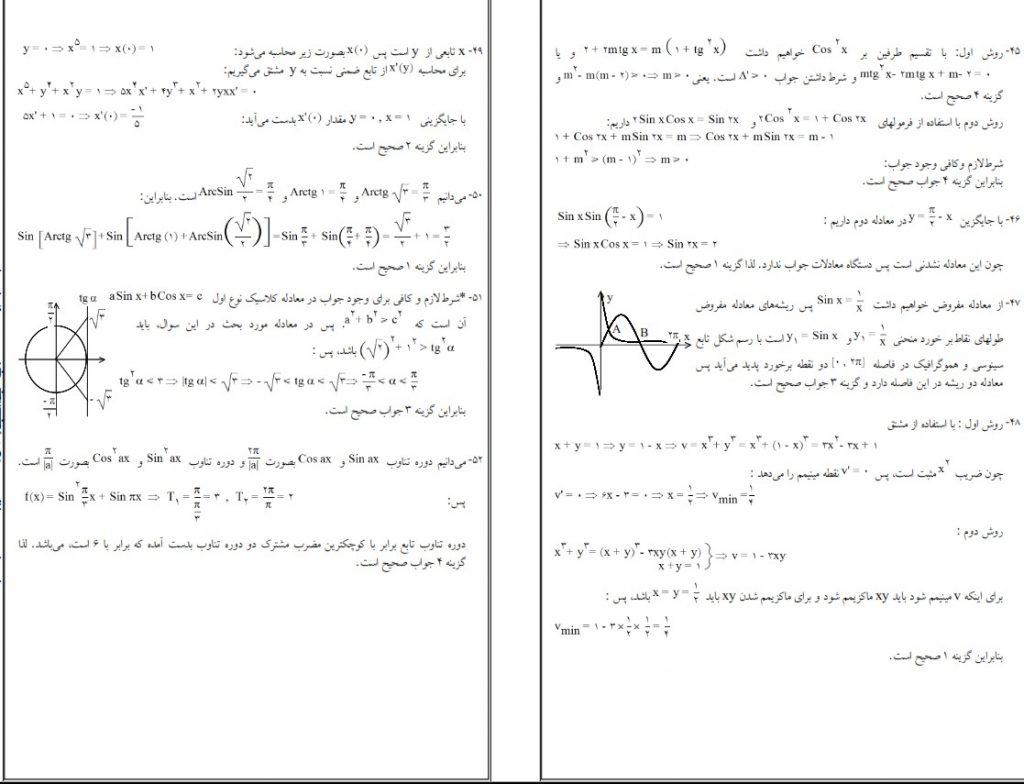 ۴۵- روش اول: با تقسیم طرفین بر Cos²x خواهیم داشت ۲ + ۲mtg x = m (۱ + tg²x) و یا
mtg²x - ۲mtg x + m - ۲ = ۰ و شرط داشتن جواب Δ' ≥ ۰ است. یعنی m² - m(m - ۲) ≥ ۰ ⇒ m ≥ ۰ و
گزینه ۴ صحیح است.
روش دوم با استفاده از فرمولهای ۲Cos²x = ۱ + Cos ۲x و ۲Sin xCos x = Sin ۲x داریم:
۱ + Cos ۲x + mSin ۲x = m ⇒ Cos ۲x + mSin ۲x = m - ۱
شرط لازم وکافی وجود جواب: ۱ + m² ≥ (m - ۱)² ⇒ m ≥ ۰
بنابراین گزینه ۴ جواب صحیح است.
۴۶- با جایگزین y = π/۲ - x در معادله دوم داریم : Sin x Sin (π/۲ - x) = ۱
⇒ Sin xCos x = ۱ ⇒ Sin ۲x = ۲
چون این معادله نشدنی است پس دستگاه معادلات جواب ندارد. لذا گزینه ۱ صحیح است.
۴۷- از معادله مفروض خواهیم داشت Sin x = ۱/x پس ریشه‌های معادله مفروض
طولهای نقاط بر خورد منحنی y₁ = ۱/x و y₁ = Sin x است با رسم شکل تابع
سینوسی و هموگرافیک در فاصله [۰, ۲π] دو نقطه برخورد پدید می‌آید پس
معادله دو ریشه در این فاصله دارد و گزینه ۳ جواب صحیح است.
y
A
B
۲π
x
۴۸- روش اول : با استفاده از مشتق
x + y = ۱ ⇒ y = ۱ - x ⇒ v = x³ + y³ = x³ + (۱ - x)³ = ۳x² - ۳x + ۱
چون ضریب x² مثبت است، پس v' = ۰ نقطه مینیمم را می‌دهد :
v' = ۰ ⇒ ۶x - ۳ = ۰ ⇒ x = ۱/۲ ⇒ v min = ۱/۴
روش دوم :
x³ + y³ = (x + y)³ - ۳xy(x + y)
x + y = ۱ } ⇒ v = ۱ - ۳xy
برای اینکه v مینیمم شود باید xy ماکزیمم شود و برای ماکزیمم شدن xy باید x = y = ۱/۲ باشد، پس :
v min = ۱ - ۳ × ۱/۲ × ۱/۲ = ۱/۴
بنابراین گزینه ۱ صحیح است.
۴۹- x تابعی از y است پس x(۰) بصورت زیر محاسبه می‌شود: y = ۰ ⇒ x⁵ = ۱ ⇒ x(۰) = ۱
برای محاسبه x'(y) از تابع ضمنی نسبت به y مشتق می‌گیریم:
x⁵ + y⁴ + x²y = ۱ ⇒ ۵x⁴x' + ۴y³ + x² + ۲yxx' = ۰
با جایگزینی y = ۰ , x = ۱ مقدار x'(۰) بدست می‌آید: ۵x' + ۱ = ۰ ⇒ x'(۰) = -۱/۵
بنابراین گزینه ۲ صحیح است.
۵۰- می‌دانیم Arctg √۳ = π/۳ و Arctg ۱ = π/۴ و ArcSin √۲/۲ = π/۴ است. بنابراین:
Sin [Arctg √۳] + Sin [Arctg (۱) + ArcSin(√۲/۲)] = Sin π/۳ + Sin(π/۴ + π/۴) = √۳/۲ + ۱ = ۳/۲
بنابراین گزینه ۱ صحیح است.
۵۱- *شرط لازم و کافی برای وجود جواب در معادله کلاسیک نوع اول aSin x+bCos x= c
آن است که a² + b² ≥ c². پس در معادله مورد بحث در این سوال، باید
(√۲)² + ۱² > tg²α باشد، پس :
tg²α < ۳ ⇒ |tg α| < √۳ ⇒ -√۳ < tg α < √۳ ⇒ -π/۳ < α < π/۳
بنابراین گزینه ۳ جواب صحیح است.
π/۲
tg α
√۳
-√۳
-π/۲
۵۲- می‌دانیم دوره تناوب Sin ax و Cos ax بصورت ۲π/|a| و دوره تناوب Sin²ax و Cos²ax بصورت π/|a| است.
پس: f(x) = Sin² π/۳ x + Sin πx ⇒ T₁ = π/(π/۳) = ۳ , T₂ = ۲π/π = ۲
دوره تناوب تابع برابر با کوچکترین مضرب مشترک دو دوره تناوب بدست آمده که برابر با ۶ است، می‌باشد. لذا
گزینه ۴ جواب صحیح است.